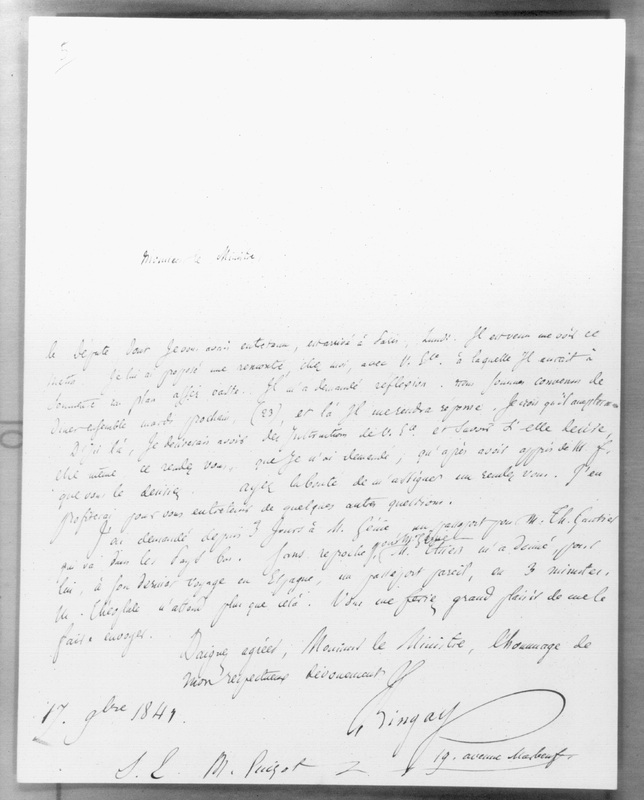 Monsieur le Ministre
le Député dont je vous avais entretenu, est arrivé à Paris, lundi. Il est venu me voir ce
matin. Je lui ai proposé une rencontre, chez moi, avec V. Exce. à laquelle Il aurait à
soumettre un plan assez vaste. Il m'a demandé réflexion. nous sommes convenus de
diner ensemble mardi prochain, (23) et là Il me rendra réponse. Je crois qu'il acceptera.
D'ici là, Je désirerais avoir des Instructions de V. Exce. et savoir si elle désire,
elle même ce rendez vous, que Je n'ai demandé, qu'après avoir appris de M. G.
que vous le désiriez. ayez la bonté de m'assigner un rendez vous. J'en
profiterai pour vous entretenir de quelques autres questions.
J'ai demandé depuis 3 Jours à M. Génie un passeport pour M. Th. Gautier
qui va dans les Pays bas. Sans reproche, pour M. Génie, M. Thiers m'a donné pour
lui, à son dernier voyage en Espagne, un passeport pareil, en 3 minutes.
M. Théophile n'attend plus que cela. Vous me feriez grand plaisir de me le
faire envoyer.
Daignez agréer, Monsieur le Ministre, l'hommage de
mon respectueux dévouement
Bingay
19. avenue Marbeuf.
17. 9bre 1841.
S. E. M. Guizot